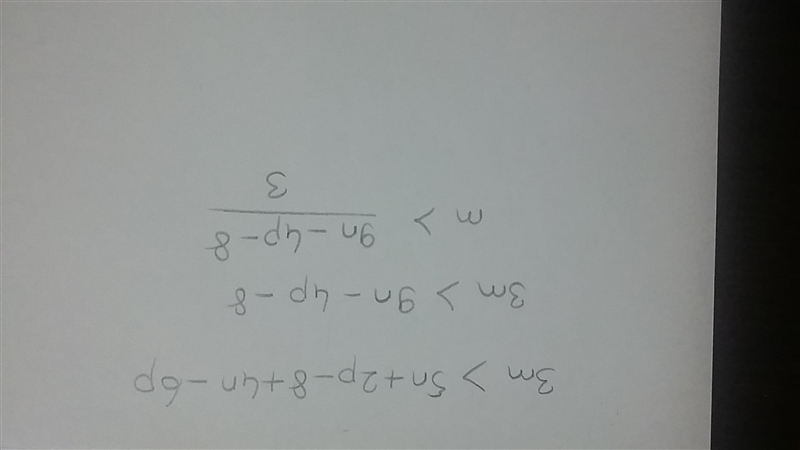 3m < 5n+2p-8+4n-6p
3m < 9n-4p-8
m < 9n-4p-8
3